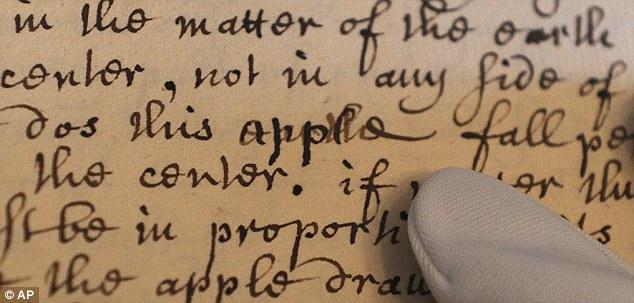 in the matter of the earth
center, not in any side of
dos this apple fall pe
the center. if ter thu
st be in proporti ts
the apple draw
© AP